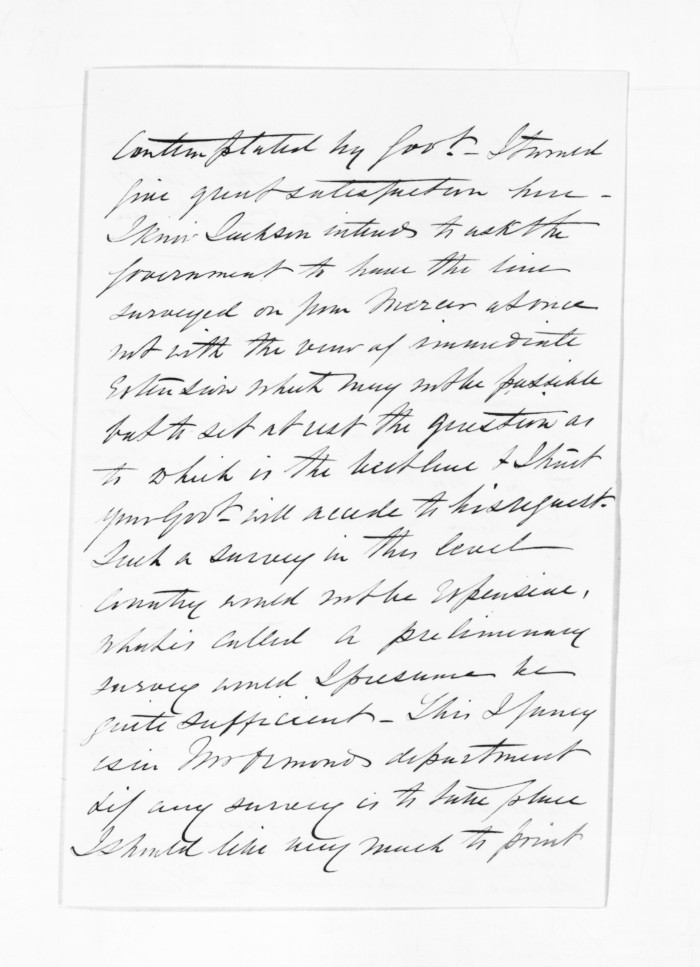 Contemplated by Govt. - I
give great satisfaction here -
I know Jackson intends to ask the
Government to have the line
surveyed on from Mercer at once
not with the view of immediate
Extension which may not be possible
but to set at rest the question as
to which is the best line & I trust
your Govt will accede to his request.
Such a survey in this level
Country would not be expensive,
what is called a preliminary
survey would I presume be
quite sufficient - This I fancy
is in Mr Ormonds department
& if any survey is to take place
I should like very much to point